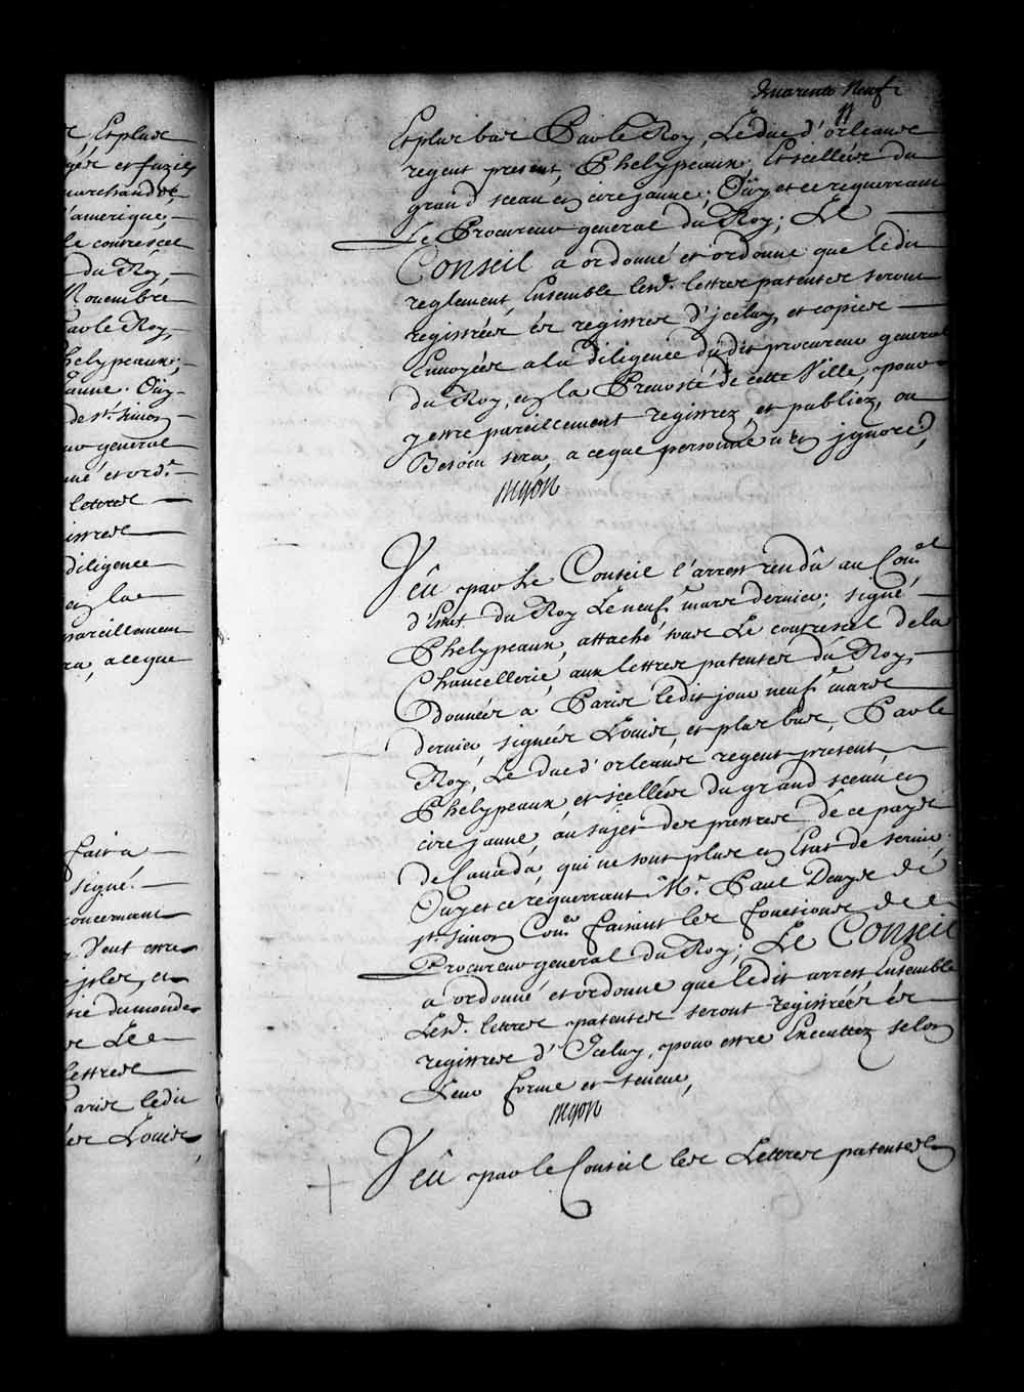 Quarente Neuf
Et plus bas Par le Roy, Le duc d'orleans
regent present, Phelypeaux; Et scellées du
grand sceau en cire jaune; Oüy et ce requerrant
Le Procureur general du Roy; Le
Conseil a ordonné et ordonne que ledit
reglement, Ensemble lesd. lettres patentes seront
registrées és registres d'jceluy, et copies
Envoyées a la diligence dudit procureur general
du Roy, en la Prevosté de cette Ville, pour
y estre pareillement registrez, et publiez, ou
Besoin sera, a ceque personne n'en jgnore,
Begon
Veü par Le Conseil l'arrest rendû au Con.el
d'Estat du Roy Le neuf.e mars dernier, signé
Phelypeaux, attaché sous Le contrescel de la
Chancellerie, aux lettres patentes du Roy,
données a Paris ledit jour neuf.e mars
dernier, signées Louis, et plus bas, Par le
Roy, Le duc d'orleans regent present,
Phelypeaux, et scellées du grand sceau en
cire jaune, au sujet des prestres de ce pays
de Canada, qui ne sont plus en Estat de servir;
Oüy et ce requerrant M.r Paul Denys de
st. simon Con.er faisant les fonctions de
Procureur general du Roy; Le Conseil
a ordonné et ordonne que ledit arrest, Ensemble
Lesd. lettres patentes seront registrées és
registres d'Jceluy, pour estre Executtez selon
Leur forme et teneur,
Begon
Veü par le Conseil les Lettres patentes
Et plus
et fuzils
marchandes,
l'amerique,
le contrescel
du Roy,
Novembre
Par le Roy,
Phelypeaux;
jaune. Oüy
de st. simon
general
et ord.e
lettres
diligence
en la
pareillement
sera, a ceque
fait a
signé.
concernant
Veut estre
jsles, et
du monde
Le
Lettres
Paris ledit
Louis,